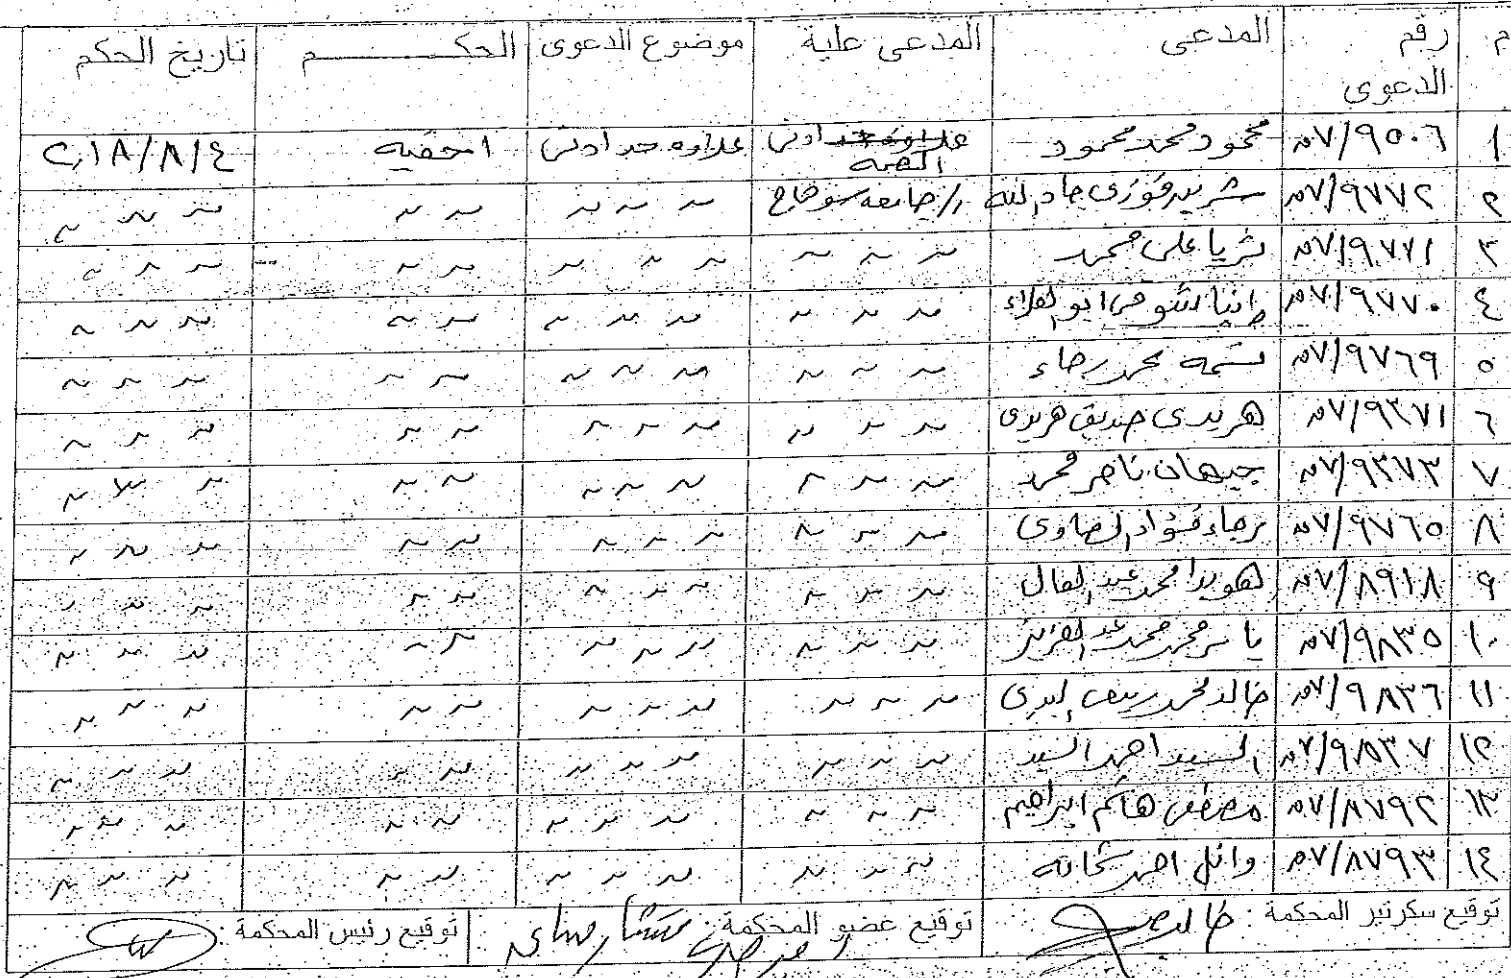 م | رقم الدعوى | المدعى | المدعى علية | موضوع الدعوى | الحكــــم | تاريخ الحكم
١ | ٩٥٠٦/٥٧ | محمود محمد محمود | الصحه | علاوه حد ادنى | احقيه | ٢٠١٨/٨/٤
٢ | ٩٧٧٢/٥٧ | شريف فوزى جاد الله | ر/جامعه سوهاج | 〃 〃 〃 | 〃 〃 | 〃 〃 〃
٣ | ٩٧٧١/٥٧ | ثريا على محمد | 〃 〃 〃 | 〃 〃 〃 | 〃 〃 | 〃 〃 〃
٤ | ٩٧٧٠/٥٧ | رانيا شوقى ابو العلاء | 〃 〃 〃 | 〃 〃 〃 | 〃 〃 | 〃 〃 〃
٥ | ٩٧٦٩/٥٧ | محمد رجاء | 〃 〃 〃 | 〃 〃 〃 | 〃 〃 | 〃 〃 〃
٦ | ٩٣٧١/٥٧ | هريدى صديق هريدى | 〃 〃 〃 | 〃 〃 〃 | 〃 〃 | 〃 〃 〃
٧ | ٩٣٧٣/٥٧ | جيهان ناصر محمد | 〃 〃 〃 | 〃 〃 〃 | 〃 〃 | 〃 〃 〃
٨ | ٩٧٦٥/٥٧ | رجاء فؤاد الصاوى | 〃 〃 〃 | 〃 〃 〃 | 〃 〃 | 〃 〃 〃
٩ | ٨٩١٨/٥٧ | هويدا محمد عبد العال | 〃 〃 〃 | 〃 〃 〃 | 〃 〃 | 〃 〃 〃
١٠ | ٩٨٣٥/٥٧ | ياسر محمد محمد عبد العزيز | 〃 〃 〃 | 〃 〃 〃 | 〃 〃 | 〃 〃 〃
١١ | ٩٨٣٦/٥٧ | خالد محمد | 〃 〃 〃 | 〃 〃 〃 | 〃 〃 | 〃 〃 〃
١٢ | ٩٨٣٧/٥٧ | السيد احمد السيد | 〃 〃 〃 | 〃 〃 〃 | 〃 〃 | 〃 〃 〃
١٣ | ٨٧٩٢/٥٧ | مصطفى هاشم ابراهيم | 〃 〃 〃 | 〃 〃 〃 | 〃 〃 | 〃 〃 〃
١٤ | ٨٧٩٣/٥٧ | وائل احمد شحاته | 〃 〃 〃 | 〃 〃 〃 | 〃 〃 | 〃 〃 〃
توقيع سكرتير المحكمة : | توقيع عضو المحكمة : | توقيع رئيس المحكمة :